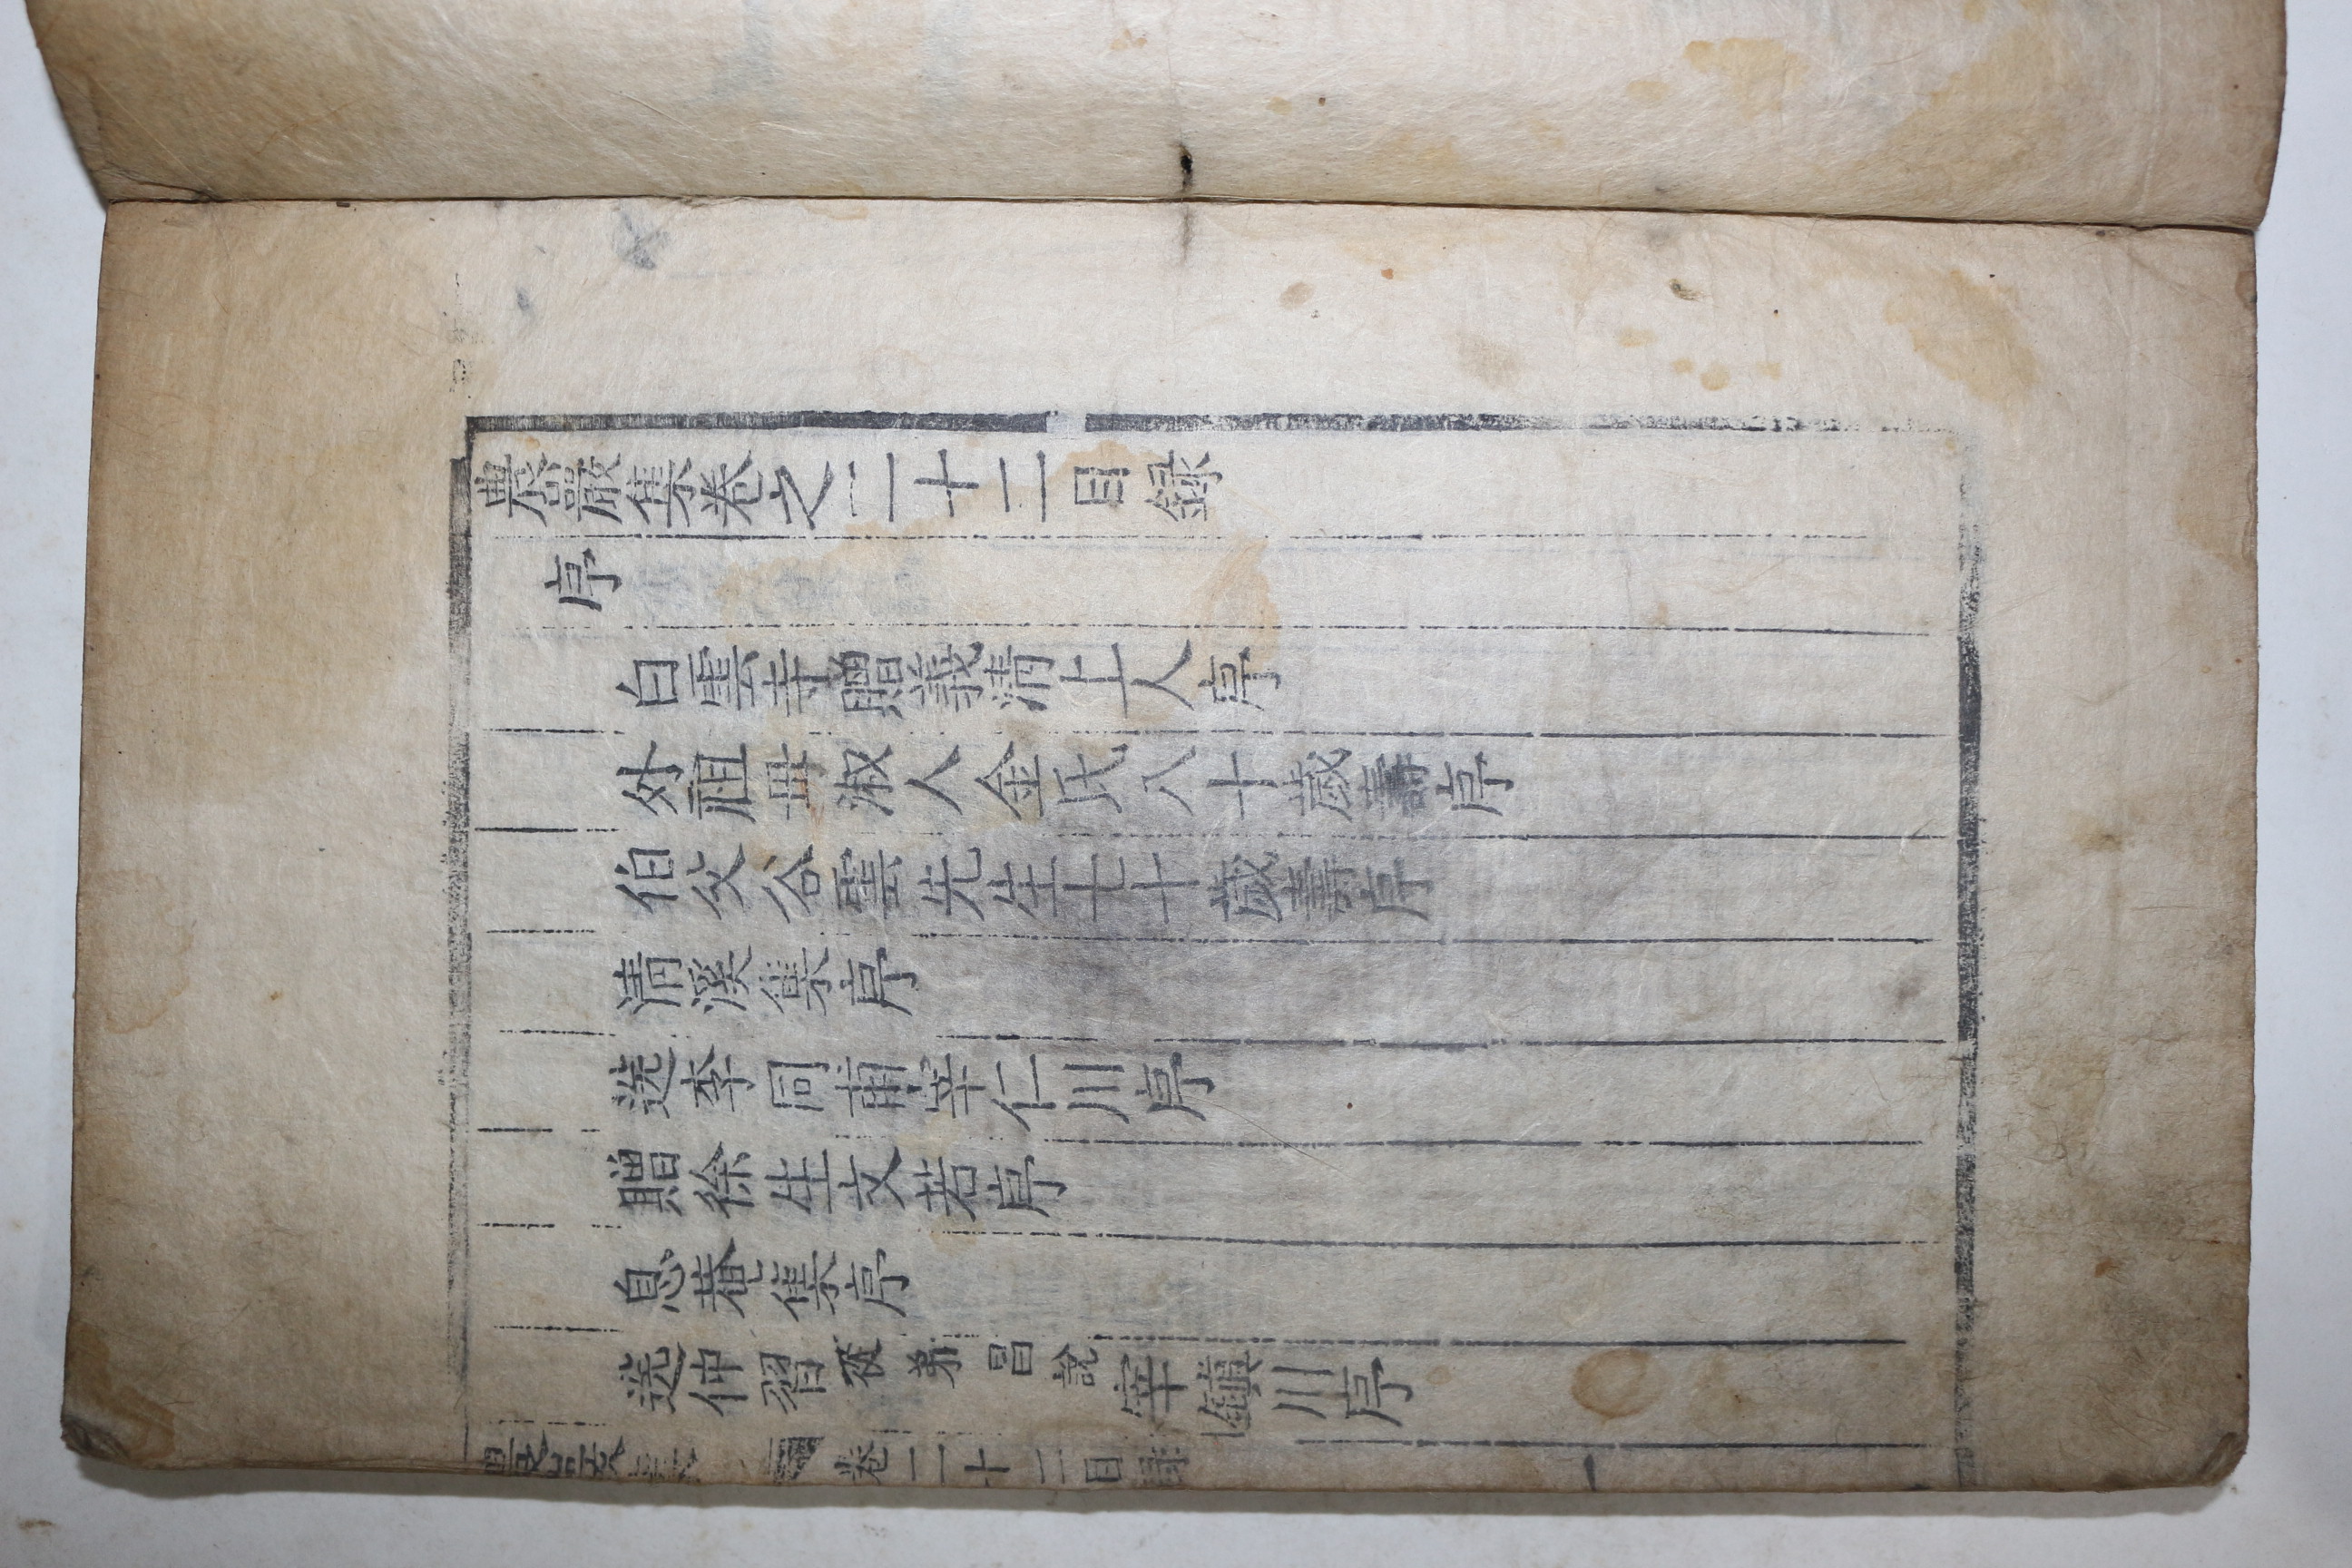 農巖集卷之二十二目錄
序
白雲寺贈義淸上人序
外祖母淑人金氏八十歲壽序
伯父谷雲先生七十歲壽序
淸溪集序
送李同甫宰仁川序
贈徐生文若序
息菴集序
送仲習從弟昌說宰鎭川序
農巖集 卷二十二目錄